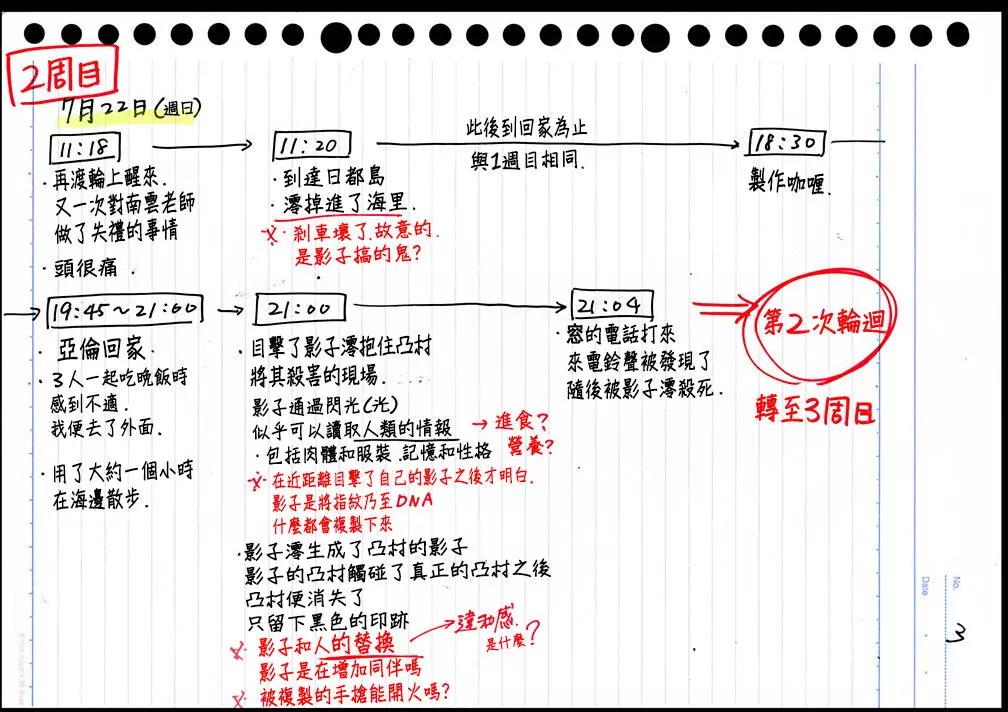 2周目
7月22日(週日)
11:18
・再渡輪上醒來.
又一次對南雲老師
做了失禮的事情
・頭很痛.
11:20
・到達日都島
・澪掉進了海里.
※・剎車壞了.故意的.
是影子搞的鬼?
此後到回家為止
與1週目相同.
18:30
製作咖喱.
19:45~21:00
・亞倫回家.
・3人一起吃晚飯時
感到不適.
我便去了外面.
・用了大約一個小時
在海邊散步.
21:00
・目擊了影子澪抱住凸村
將其殺害的現場.
影子通過閃光(光)
似乎可以讀取人類的情報
→進食?
營養?
・包括肉體和服裝.記憶和性格
※・在近距離目擊了自己的影子之後才明白.
影子是將指紋乃至DNA
什麼都會複製下來
・影子澪生成了凸村的影子
影子的凸村觸碰了真正的凸村之後
凸村便消失了
只留下黑色的印跡
※・影子和人的替換
→違和感
是什麼?
影子是在增加同伴嗎
※・被複製的手搶能開火嗎?
21:04
・窓的電話打來
來電鈴聲被發現了
隨後被影子澪殺死.
第2次輪迴
轉至3周目
No.
Date
3